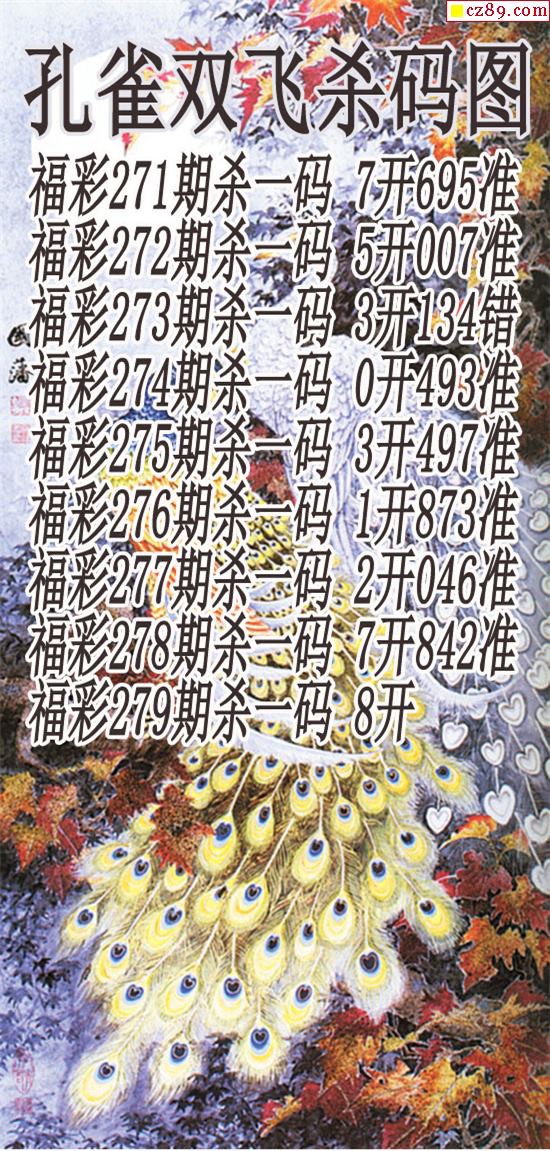 cz89.com
孔雀双飞杀码图
福彩271期杀一码 7开695准
福彩272期杀一码 5开007准
福彩273期杀一码 3开134错
福彩274期杀一码 0开493准
福彩275期杀一码 3开497准
福彩276期杀一码 1开873准
福彩277期杀一码 2开046准
福彩278期杀一码 7开842准
福彩279期杀一码 8开